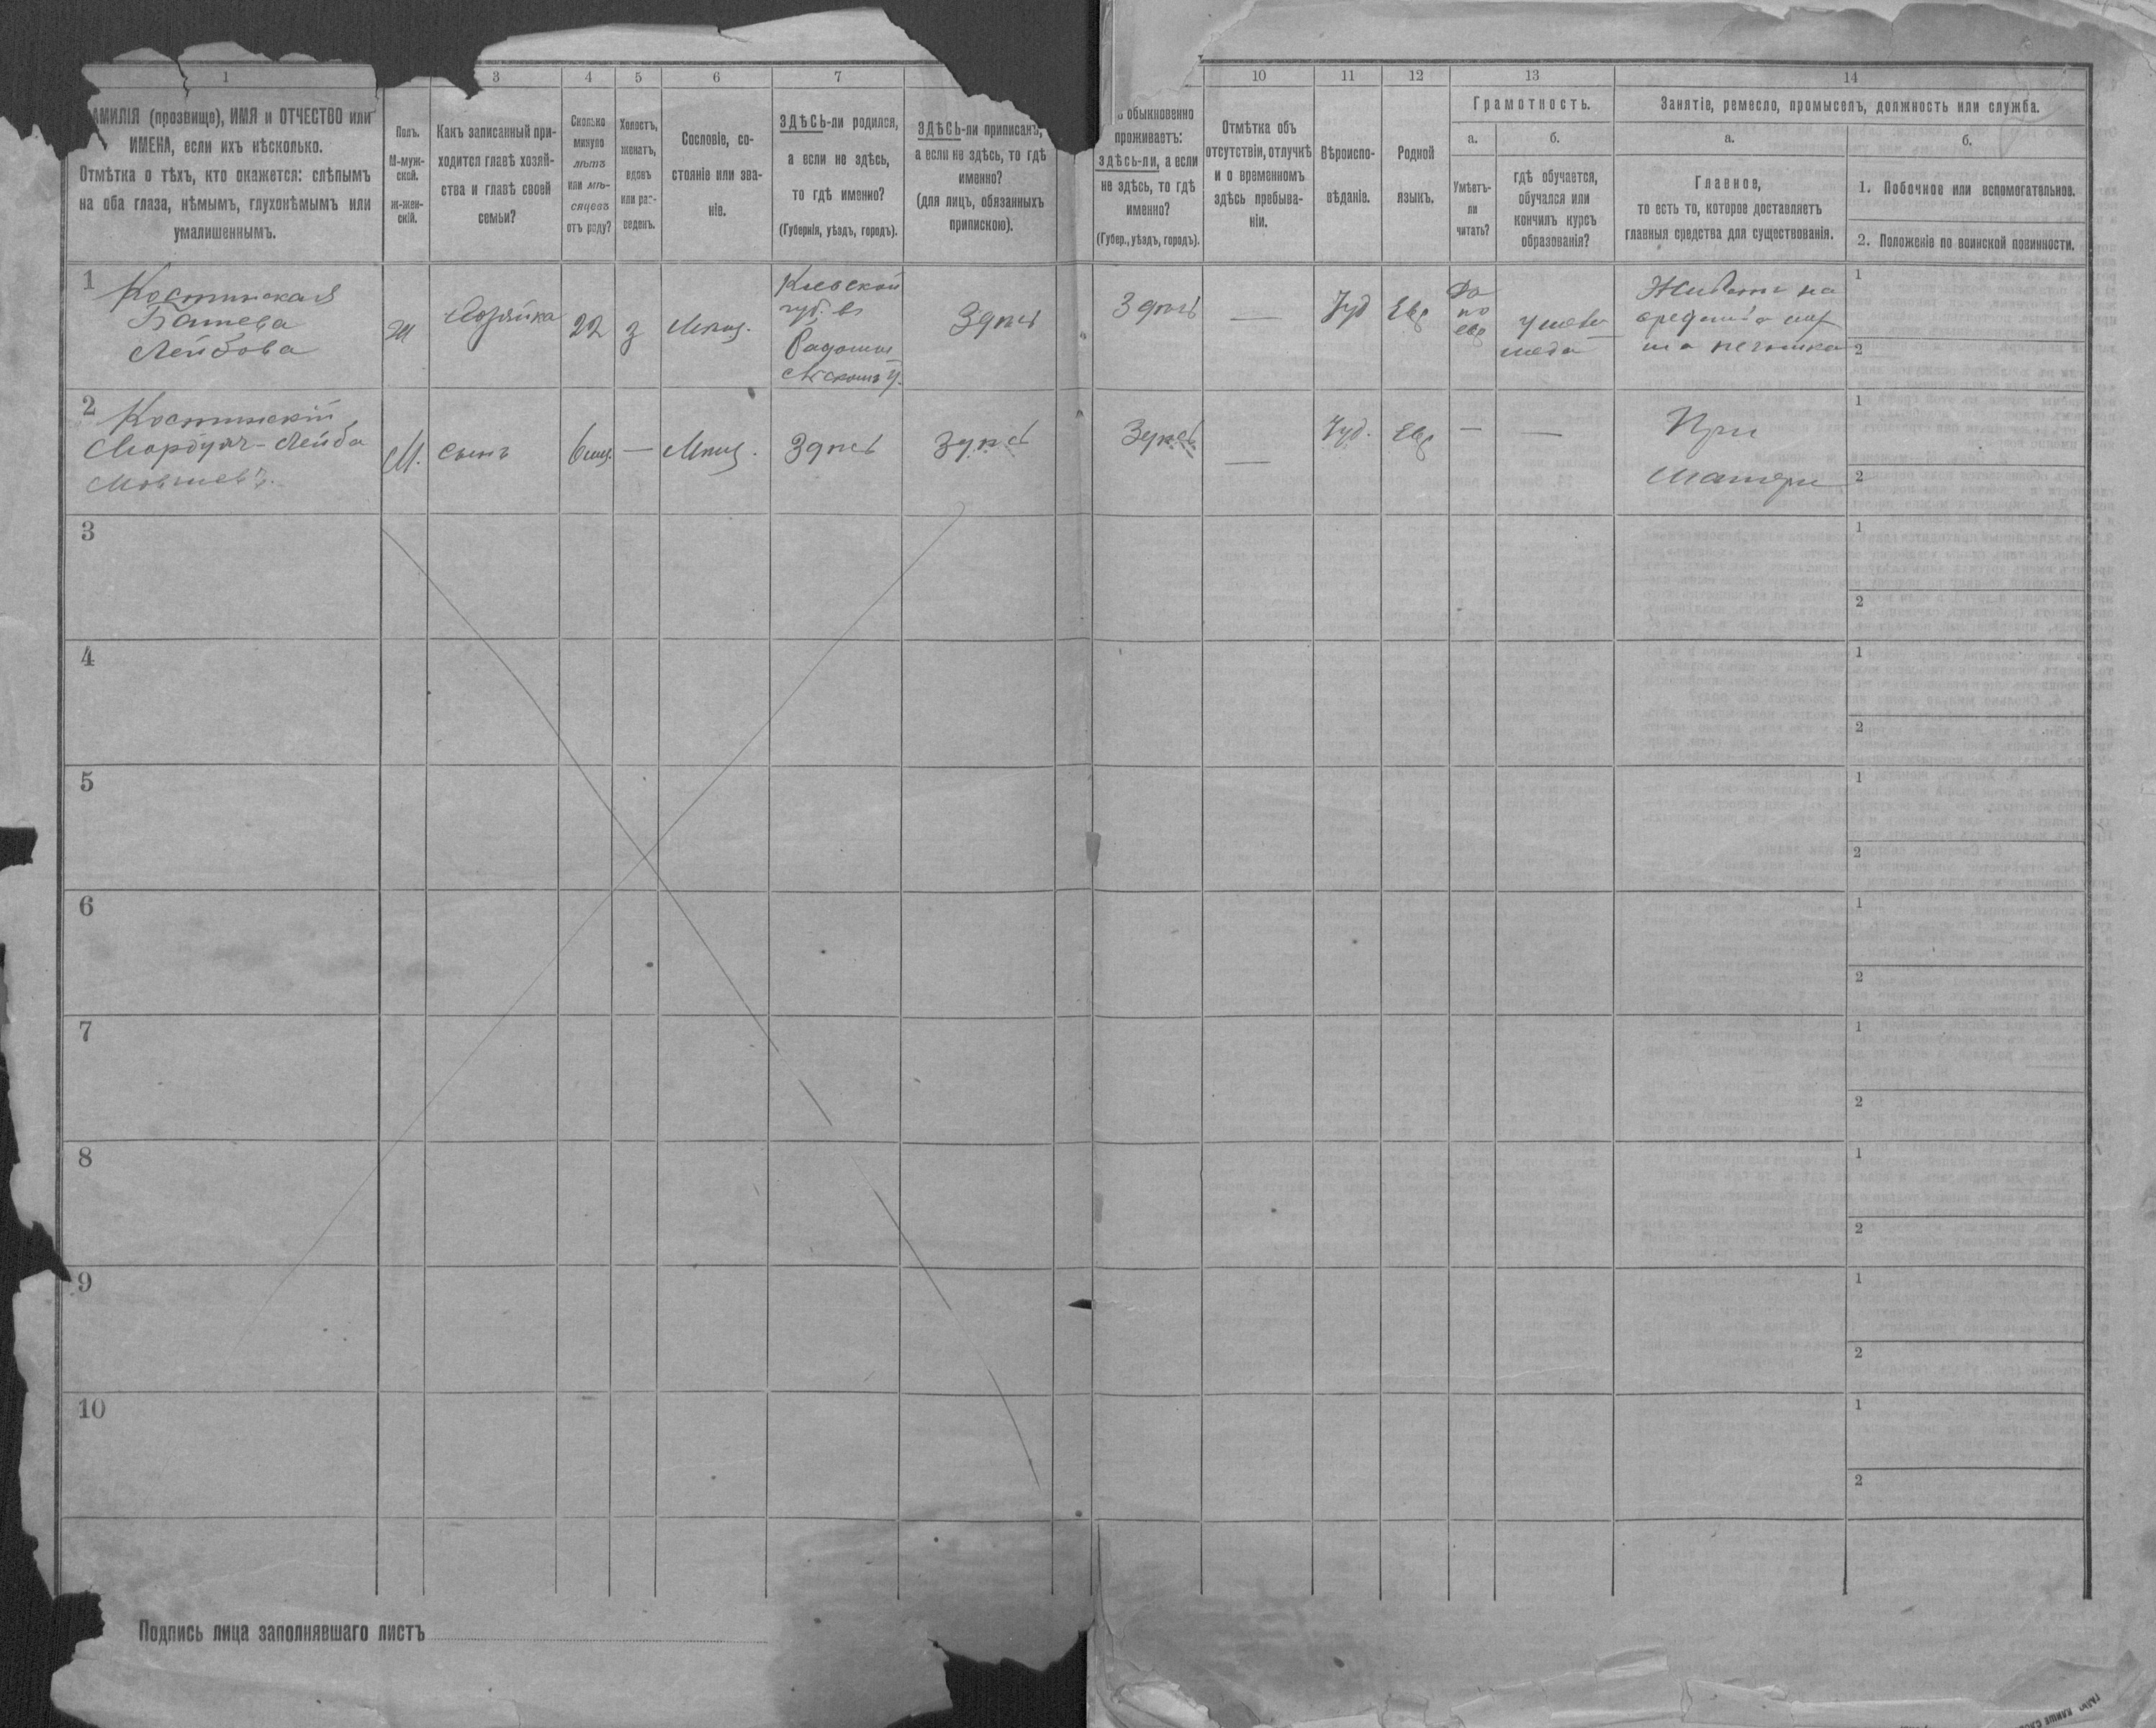 1
3
4
5
6
7
10
11
12
13
14
АМИЛІЯ (прозвище), ИМЯ и ОТЧЕСТВО или
ИМЕНА, если ихъ нѣсколько.
Отмѣтка о тѣхъ, кто окажется: слѣпымъ
на оба глаза, нѣмымъ, глухонѣмымъ или
умалишеннымъ.
Полъ.
М-муж-
ской.
ж-жен-
скій.
Какъ записанный при-
ходится главѣ хозяй-
ства и главѣ своей
семьи?
Сколько
минуло
лѣтъ
или мѣ-
сяцевъ
отъ роду?
Холостъ,
женатъ,
вдовъ
или раз-
веденъ.
Сословіе, со-
стояніе или зва-
ніе.
ЗДѢСЬ-ли родился,
а если не здѣсь,
то гдѣ именно?
(Губернія, уѣздъ, городъ).
ЗДѢСЬ-ли приписанъ,
а если не здѣсь, то гдѣ
именно?
(для лицъ, обязанныхъ
припискою).
обыкновенно
проживаетъ:
здѣсь-ли, а если
не здѣсь, то гдѣ
именно?
(Губер., уѣздъ, городъ).
Отмѣтка объ
отсутствіи, отлучкѣ
и о временномъ
здѣсь пребыва-
ніи.
Вѣроиспо-
вѣданіе.
Родной
языкъ.
Грамотность.
а.
Умѣетъ-
ли
читать?
б.
гдѣ обучается,
обучался или
кончилъ курсъ
образованія?
Занятіе, ремесло, промыселъ, должность или служба.
а.
Главное,
то есть то, которое доставляетъ
главныя средства для существованія.
б.
1. Побочное или вспомогательное.
2. Положеніе по воинской повинности.
1
Костинская
Башева
Лейбова
ж
Хозяйка
22
з
Мѣщ.
Кіевской
губ. въ
Радомыс
льскомъ у.
Здѣсь
Здѣсь
—
Іуд
Евр
Да
по
евр
у меламеда
Живетъ на
средства му
жа
1
2
2
Костинскій
Мордухъ-Лейба
Мовшевъ.
М.
сынъ
6 мщ.
—
Мѣщ.
Здѣсь
Здѣсь
Здѣсь
—
Іуд.
Евр
—
—
При
матери
1
2
3
1
2
4
1
2
5
1
2
6
1
2
7
1
2
8
1
2
9
1
2
10
1
2
Подпись лица заполнявшаго листъ